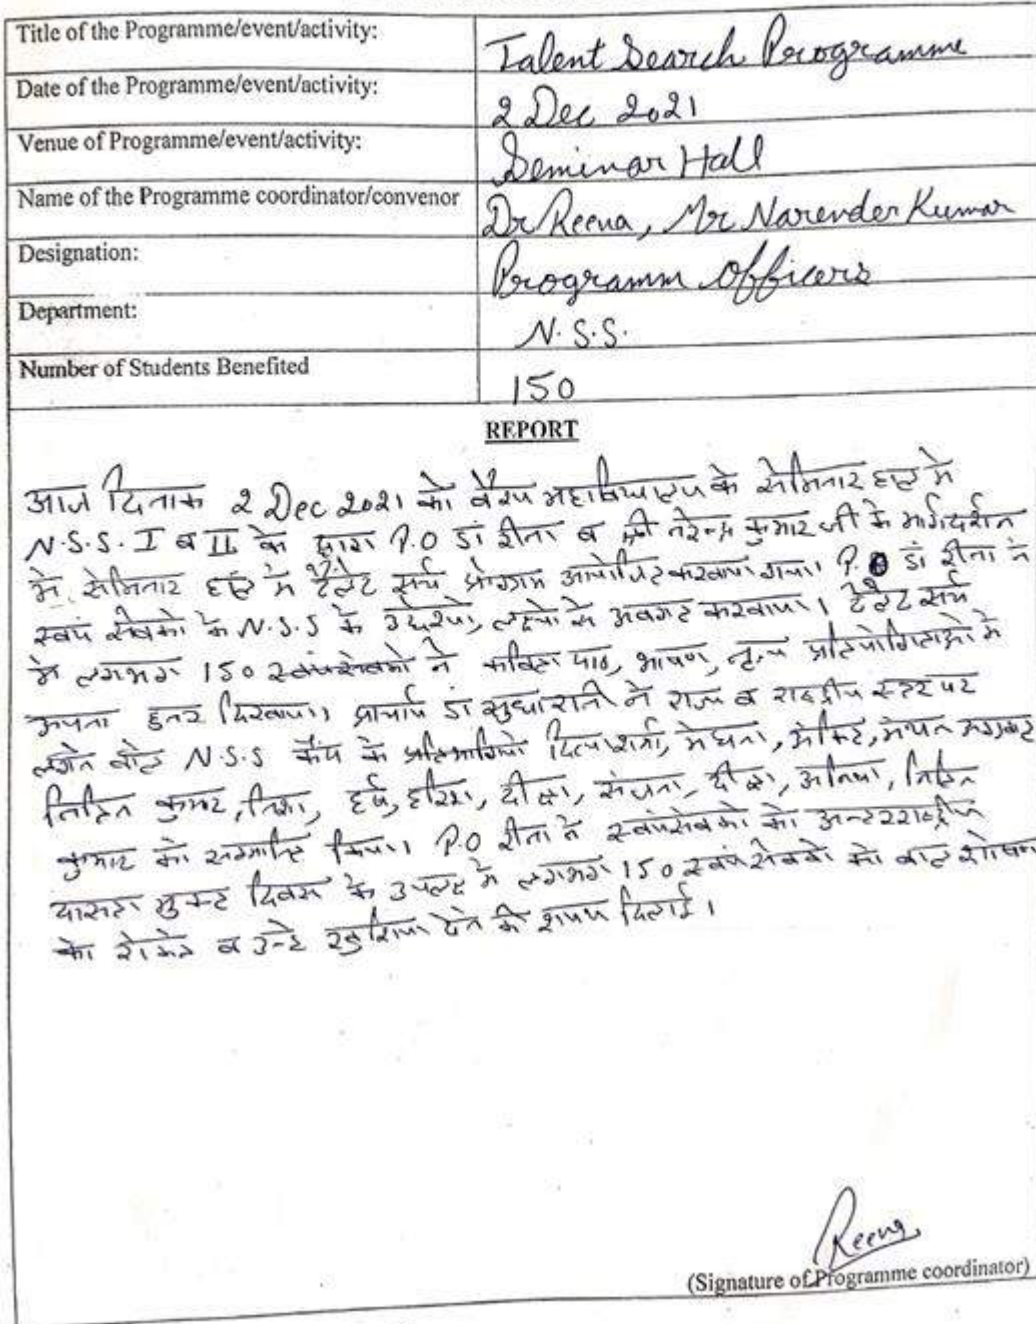 Title of the Programme/event/activity: Talent Search Programme
Date of the Programme/event/activity: 2 Dec 2021
Venue of Programme/event/activity: Seminar Hall
Name of the Programme coordinator/convenor Dr Reena, Mr Narender Kumar
Designation: Programm Officers
Department: N.S.S.
Number of Students Benefited 150
REPORT
आज दिनाक 2 Dec 2021 को वैश्य महाविद्यालय के सेमिनार हाल में
N.S.S. I व II के द्वारा P.O डां रीना व श्री नरेन्द्र कुमार जी के मार्गदर्शन
में सेमिनार हाल में टैलेंट सर्च प्रोग्राम आयोजित करवाया गया। P.O डां रीना ने
स्वयं सेवको के N.S.S के उद्देश्यो, लक्ष्यो से अवगत करवाया। टैलेंट सर्च
में लगभग 150 स्वयंसेवको ने कविता पाठ, भाषण, नृत्य प्रतियोगिताओ में
अपना हुनर दिखाया। प्राचार्य डां सुधा रानी ने राज्य व राष्ट्रीय स्तर पर
लगने वाले N.S.S कैंप के प्रतिभागियो दिव्या शर्मा, मेघना, अंकित,
कुमार, निशा, हर्ष, हरिश, दीक्षा, संजना, दीक्षा,
कुमार को सम्मानित किया। P.O रीना ने स्वयंसेवको को अन्तरराष्ट्रीय
दासता मुक्त दिवस के उपलक्ष में लगभग 150 स्वयं सेवको को बाल शोषण
को रोकने व उन्हे शपथ दिलाई।
Reena
(Signature of Programme coordinator)